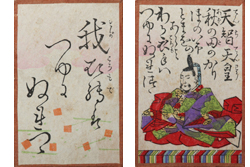 我衣手は
つゆに
ぬれつゝ
天智天皇
秋の田のかり
ほの庵の
とまをあらみ
わが衣手は
つゆにぬれつゝ